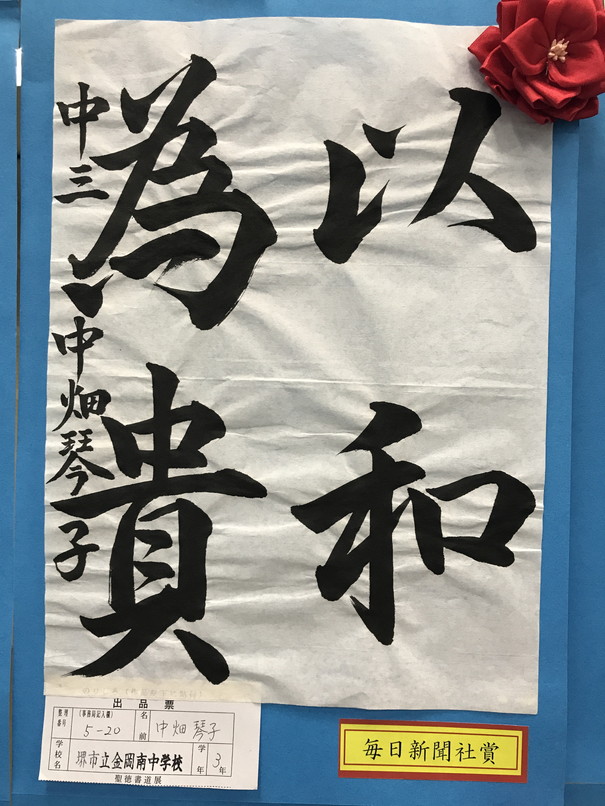 以和
為貴
中三 中畑琴子
出品票
整理番号
(事務局記入欄)
5-20
名前
中畑 琴子
学校名
堺市立金岡南中学校
学年
3年
聖徳書道展
毎日新聞社賞